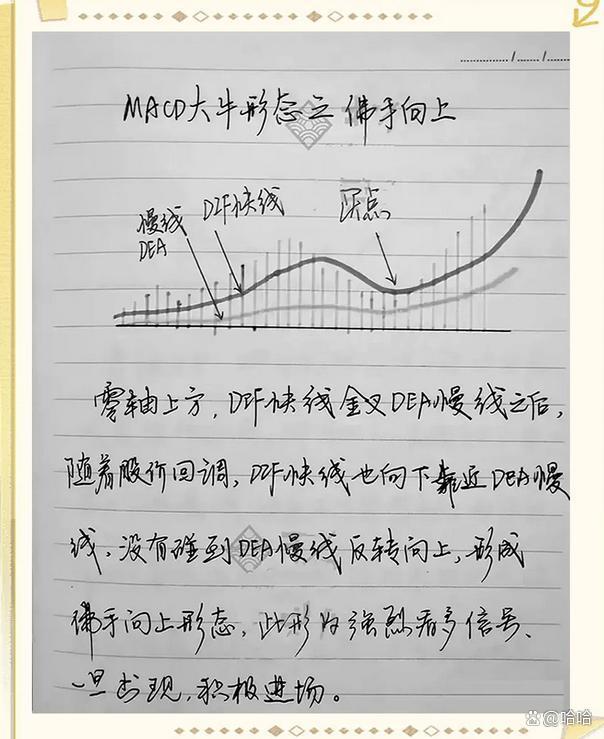 MACD大牛形态之佛手向上
DIF快线
买点
慢线
DEA
零轴上方,DIF快线金叉DEA慢线之后,
随着股价回调,DIF快线也向下靠近DEA慢
线,没有碰到DEA慢线反转向上,形成
佛手向上形态,此形为强烈看多信号、
一旦出现,积极进场。
@哈哈